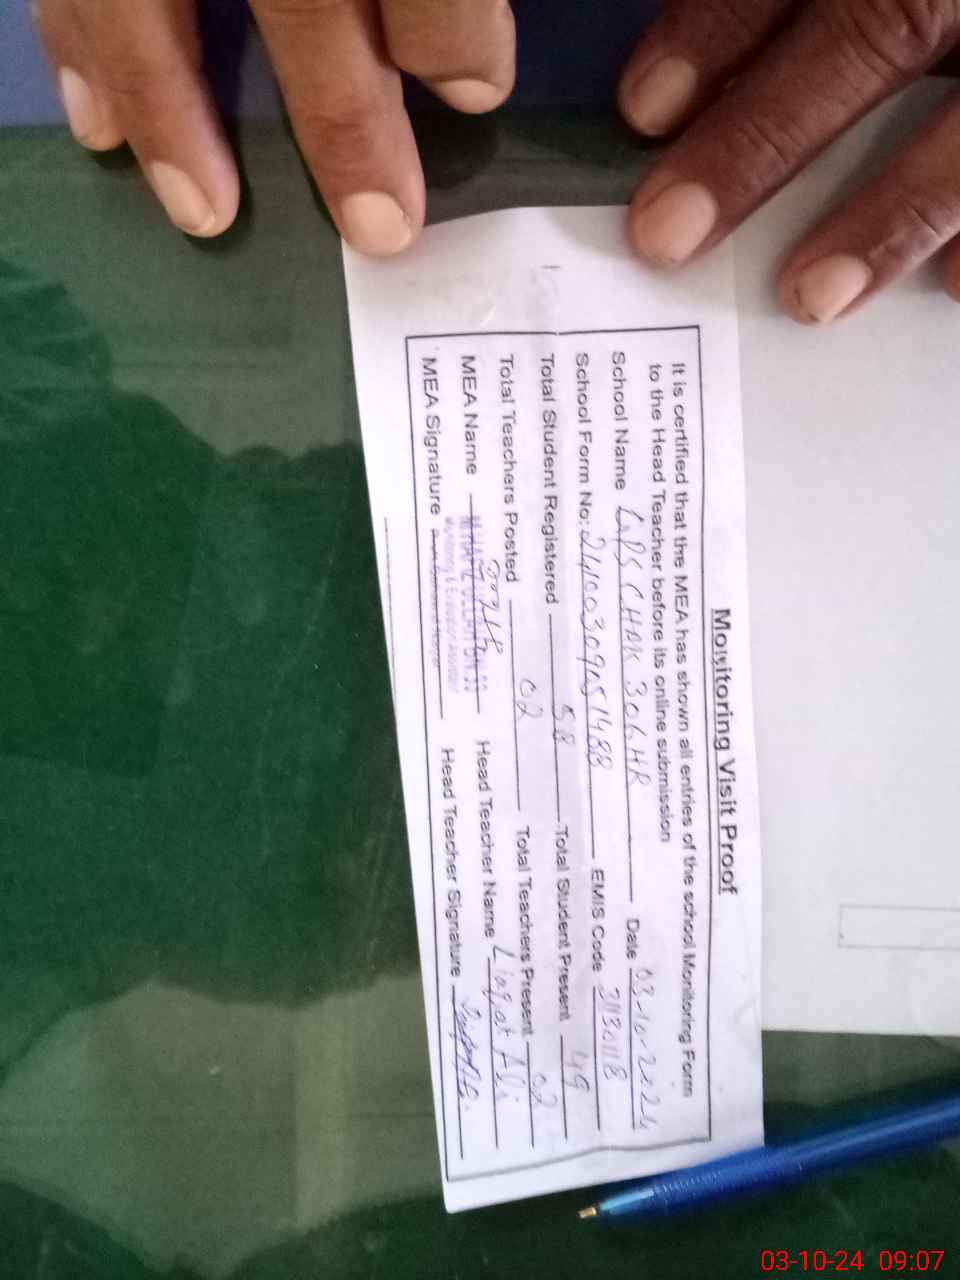 Monitoring Visit Proof
It is certified that the MEA has shown all entries of the school Monitoring Form
to the Head Teacher before its online submission
School Name GPS CHAK 306 HR Date 03-10-2024
School Form No: EMIS Code 31130118
Total Student Registered 58 Total Student Present 49
Total Teachers Posted 02 Total Teachers Present 02
MEA Name Head Teacher Name Liaqat Ali
Monitoring & Evaluation Assistant
MEA Signature Head Teacher Signature
03-10-24 09:07